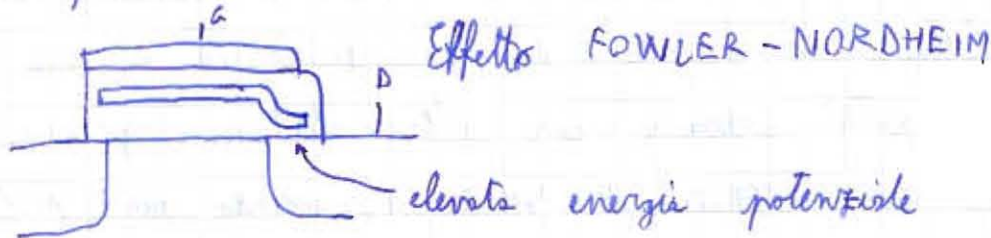 G
Effetto FOWLER-NORDHEIM
D
elevata energia potenziale